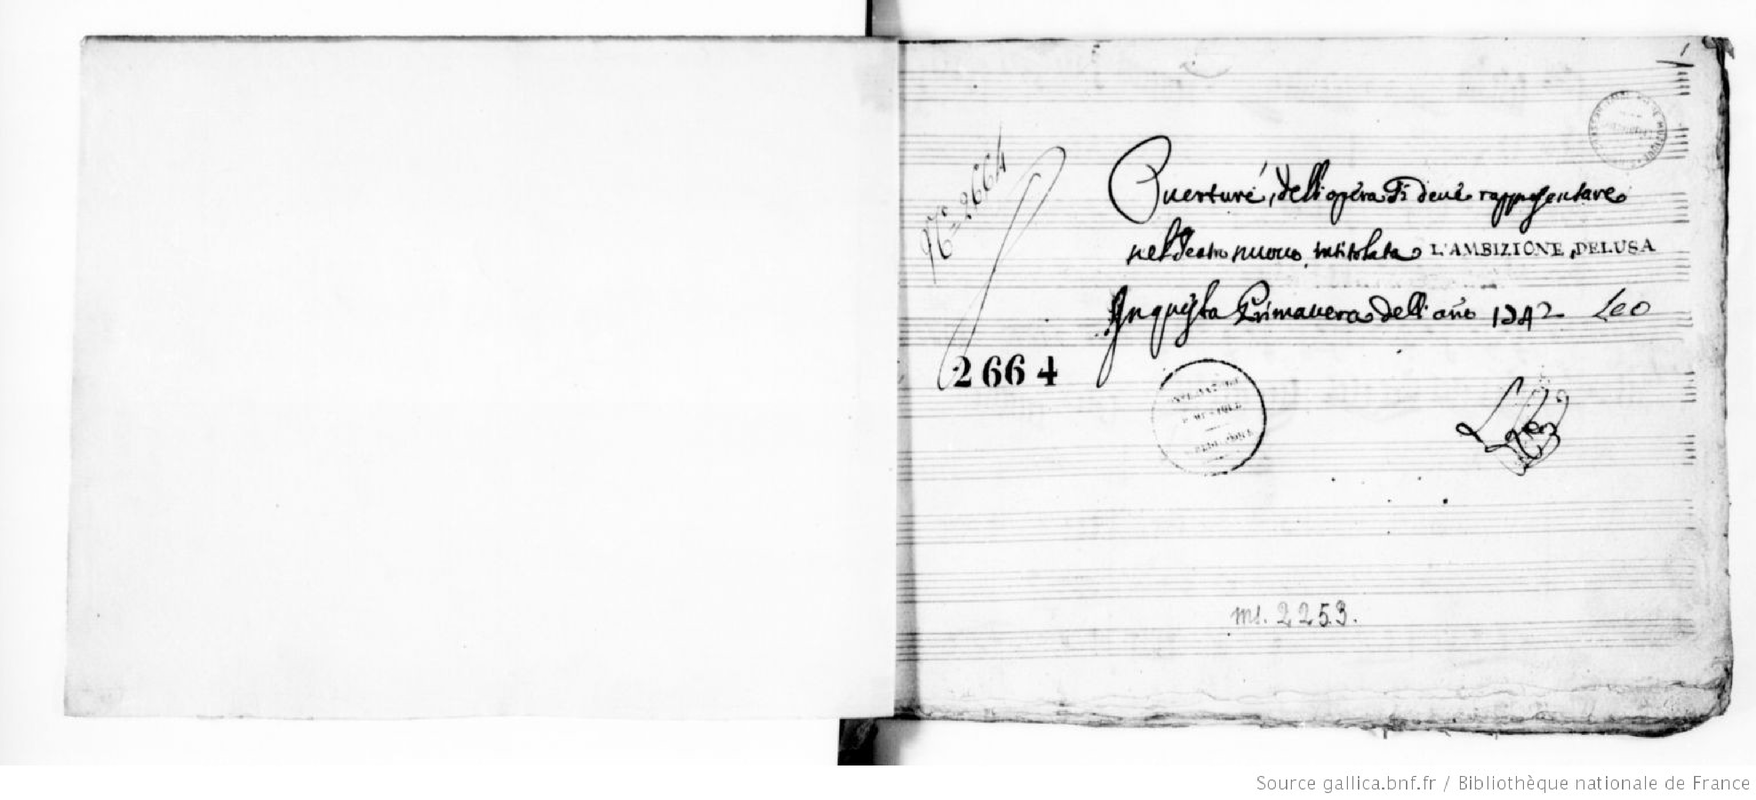 1
Ouerturé, dell'opéra si deue rappresentare
nel Teatro nuouo, intitolata L'AMBIZIONE, DELUSA
In questa Primauera dell'año 1742 Leo
Nº 2664
2664
ms. 2253.
Source gallica.bnf.fr / Bibliothèque nationale de France